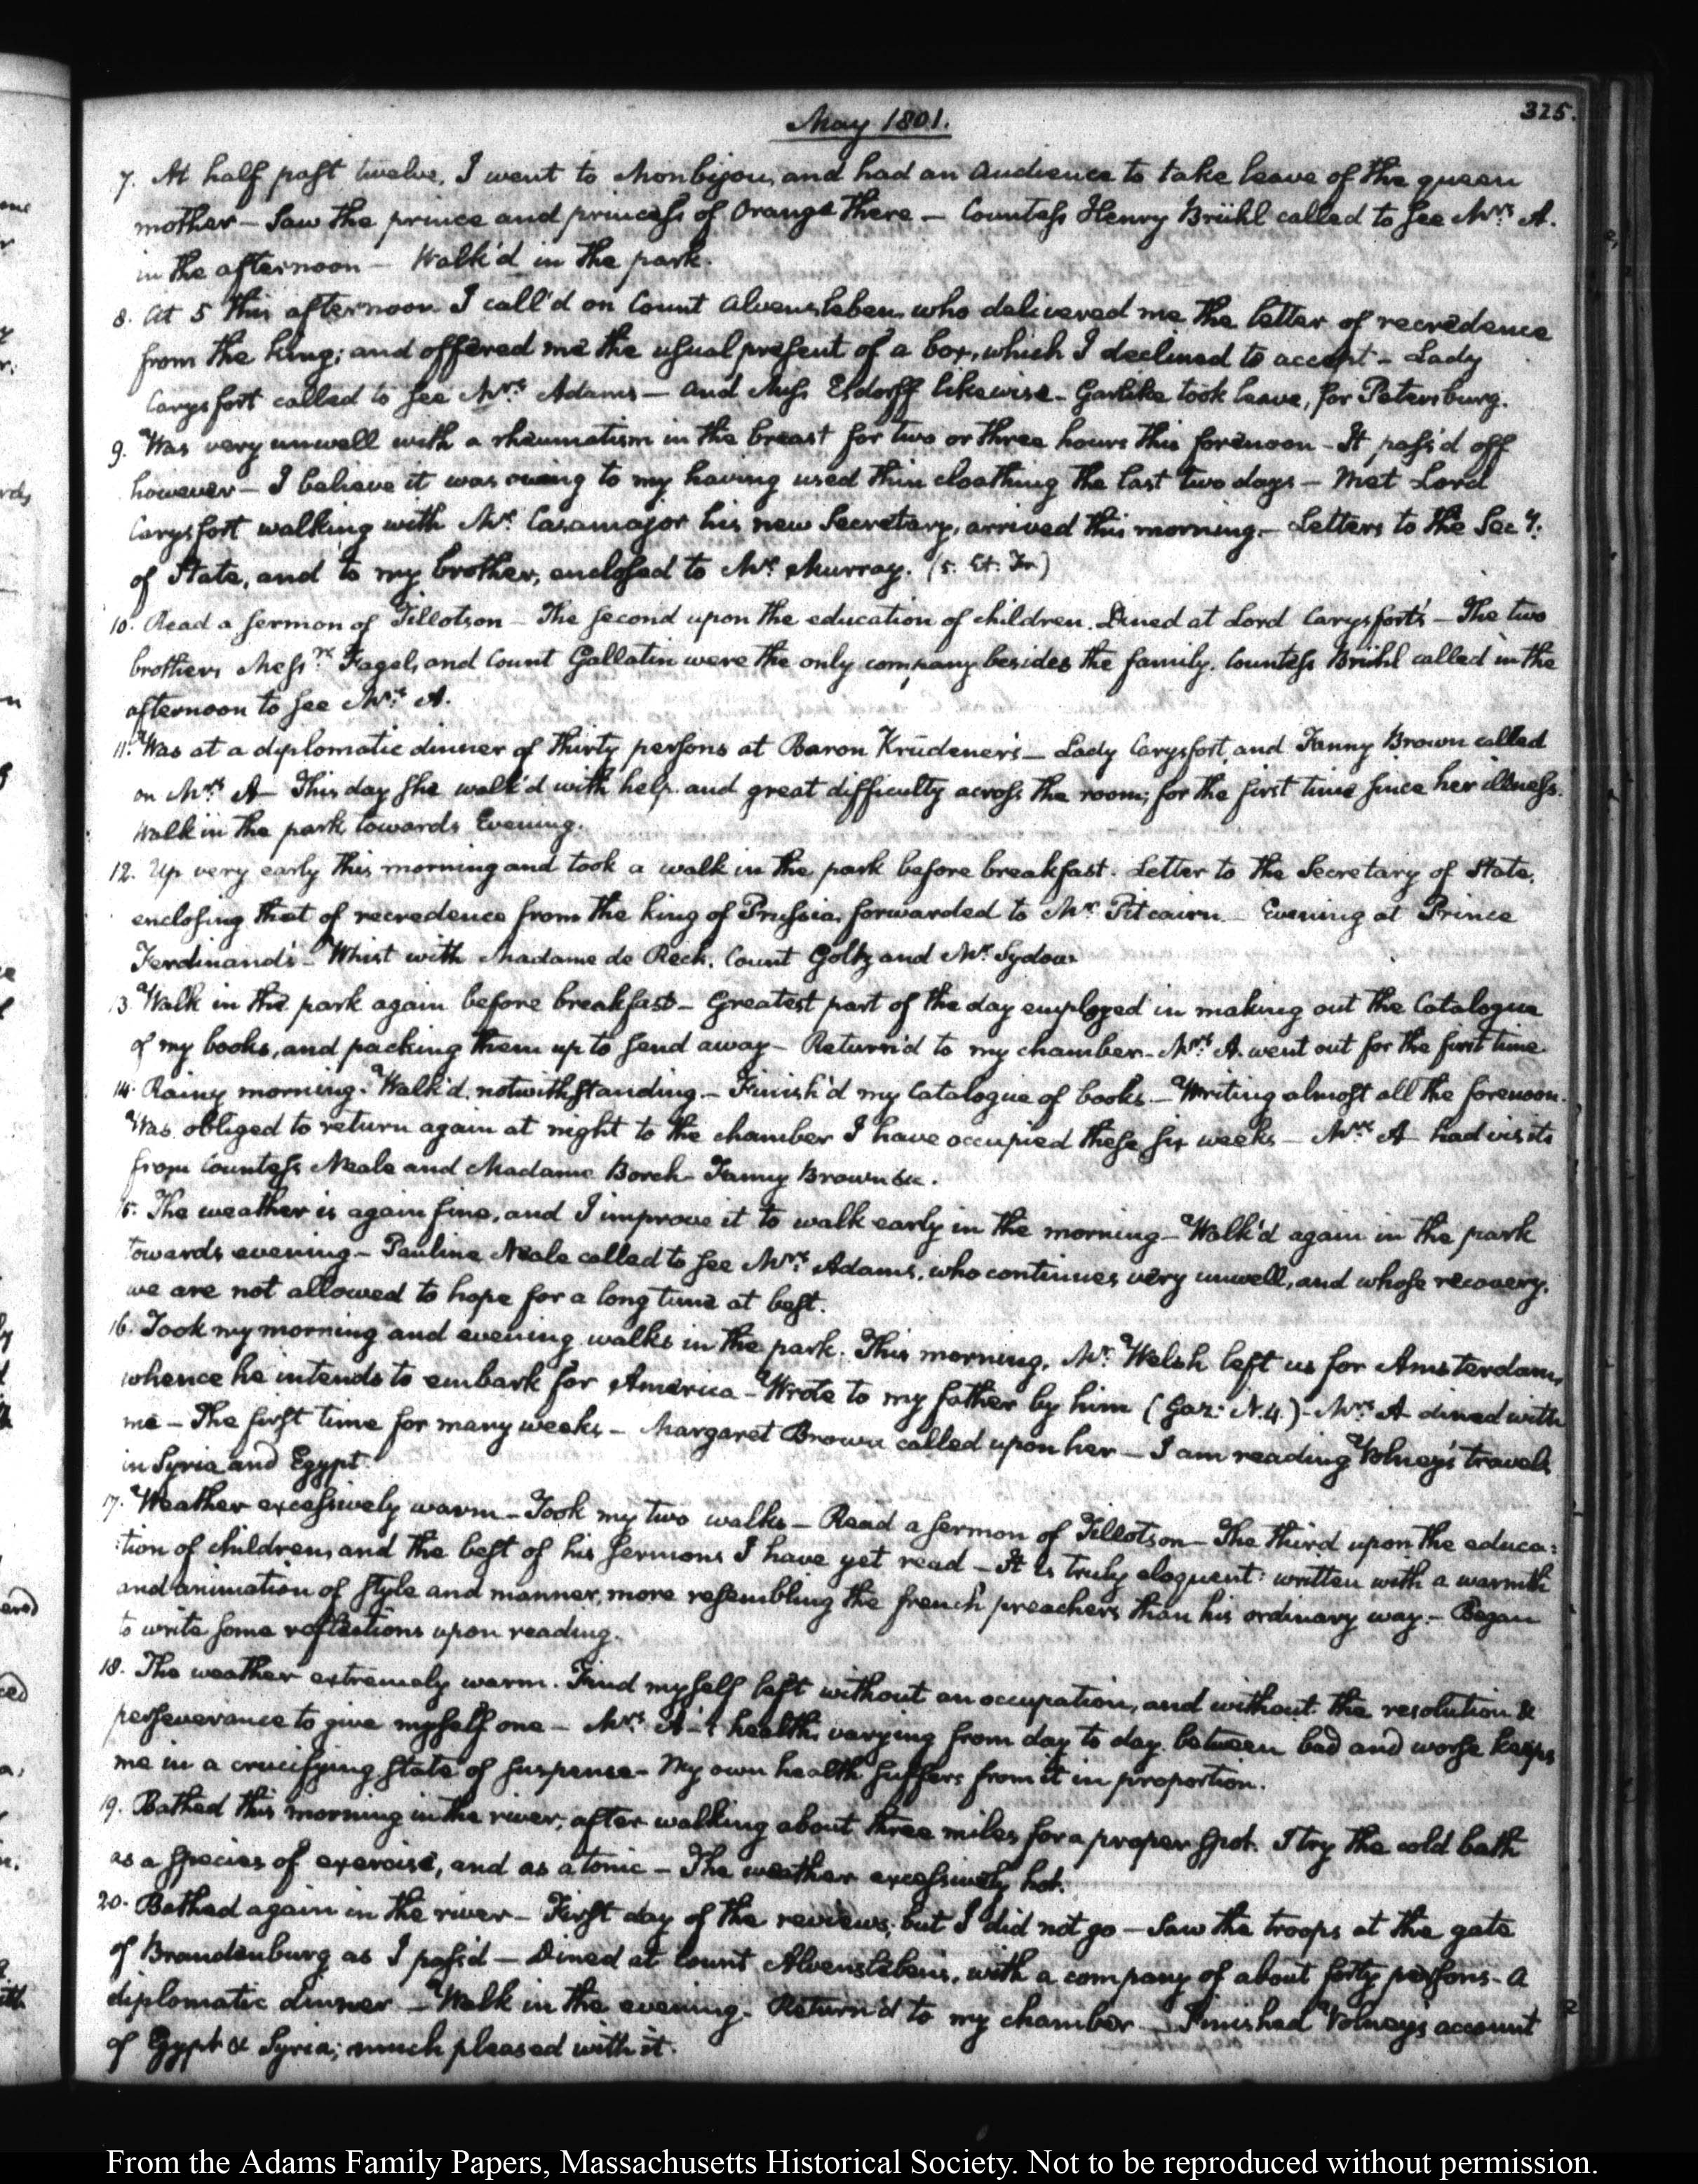 325.
May 1801.
7. At half past twelve, I went to Monbijou, and had an audience to take leave of the queen
mother — Saw the prince and princess of Orange there — Countess Henry Brühl called to see Mrs. A.
in the afternoon — Walk'd in the park.
8. At 5 this afternoon I call'd on Count Alvensleben who delivered me the letter of recredence
from the king; and offered me the usual present of a box, which I declined to accept — Lady
Carysfort called to see Mrs. Adams — and Miss Eldorff likewise — Garlike took leave, for Petersburg.
9. Was very unwell with a rheumatism in the breast for two or three hours this forenoon — It pass'd off
however — I believe it was owing to my having used thin cloathing the last two days — Met Lord
Carysfort walking with Mr. Casamajor his new Secretary, arrived this morning. — Letters to the Secy.
of State, and to my brother, enclosed to Mr. Murray. (5. Et. Fr.)
10. Read a sermon of Tillotson — The second upon the education of children. Dined at Lord Carysfort's — The two
brothers Messrs. Fagel, and Count Gallatin were the only company besides the family. Countess Brühl called in the
afternoon to see Mrs. A.
11. Was at a diplomatic dinner of thirty persons at Baron Krüdener's — Lady Carysfort, and Fanny Brown called
on Mrs. A — This day she walk'd with help and great difficulty across the room; for the first time since her illness.
Walk in the park towards Evening.
12. Up very early this morning and took a walk in the park before breakfast. Letter to the Secretary of State,
enclosing that of recredence from the king of Prussia, forwarded to Mr. Pitcairn — Evening at Prince
Ferdinand's — Whist with Madame de Reck. Count Goltz and Mr. Sydow
13. Walk in the park again before breakfast — Greatest part of the day employed in making out the Catalogue
of my books, and packing them up to send away — Return'd to my chamber — Mrs. A. went out for the first time
14. Rainy morning. Walk'd, notwithstanding. — Finish'd my Catalogue of books. — Writing almost all the forenoon.
Was obliged to return again at night to the chamber I have occupied these six weeks — Mrs. A — had visits
from Countess Neale and Madame Borck — Fanny Brown &c.
15. The weather is again fine, and I improve it to walk early in the morning — Walk'd again in the park
towards evening — Pauline Neale called to see Mrs. Adams, who continues very unwell, and whose recovery,
we are not allowed to hope for a long time at best.
16. Took my morning and evening walks in the park. This morning, Mr. Welsh left us for Amsterdam,
whence he intends to embark for America — Wrote to my father by him (Gaz: N. 4.) — Mrs. A — dined with
me — The first time for many weeks — Margaret Brown called upon her — I am reading Volney's travels
in Syria and Egypt.
17. Weather excessively warm — Took my two walks — Read a sermon of Tillotson — The third upon the educa:
:tion of children, and the best of his sermons I have yet read — It is truly eloquent: written with a warmth
and animation of style and manner, more resembling the french preachers than his ordinary way. — Began
to write some reflections upon reading.
18. The weather extremely warm. Find myself left without an occupation, and without the resolution &
perseverance to give myself one — Mrs. A—'s health, varying from day to day between bad and worse keeps
me in a crucifying state of suspense — My own health suffers from it in proportion.
19. Bathed this morning in the river, after walking about three miles for a proper spot. I try the cold bath
as a species of exercise, and as a tonic — The weather excessively hot.
20. Bathed again in the river — First day of the reviews, but I did not go — Saw the troops at the gate
of Brandenburg as I pass'd — Dined at Count Alvensleben's, with a company of about forty persons — A
diplomatic dinner — Walk in the evening. Return'd to my chamber — Finished Volney's account
of Egypt & Syria; much pleased with it.
From the Adams Family Papers, Massachusetts Historical Society. Not to be reproduced without permission.